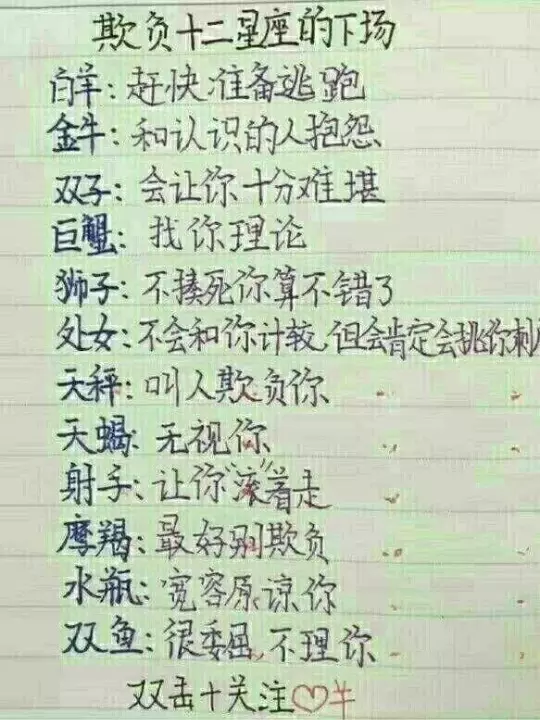 欺负十二星座的下场
白羊：赶快准备逃跑
金牛：和认识的人抱怨
双子：会让你十分难堪
巨蟹：找你理论
狮子：不揍死你算不错了
处女：不会和你计较，但会肯定会挑你刺
天秤：叫人欺负你
天蝎：无视你
射手：让你"滚"着走
摩羯：最好别欺负
水瓶：宽容原谅你
双鱼：很委屈，不理你
双击+关注♡牛